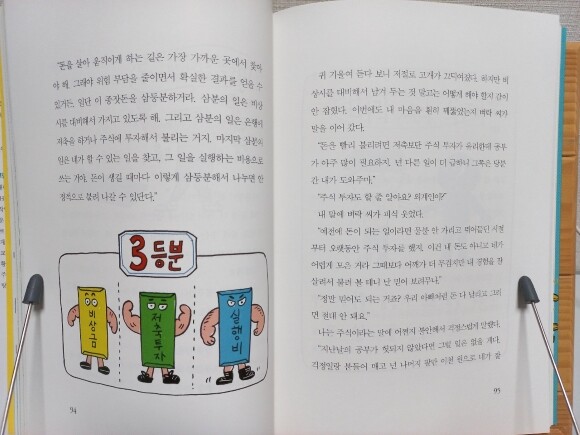 "돈을 살아 움직이게 하는 길은 가장 가까운 곳에서 찾아
야 해. 그래야 위험 부담을 줄이면서 확실한 결과를 얻을 수
있거든. 일단 이 종잣돈을 삼등분하거라. 삼분의 일은 비상
시를 대비해서 가지고 있도록 해. 그리고 삼분의 일은 은행에
저축을 하거나 주식에 투자해서 불리는 거지. 마지막 삼분의
일은 네가 할 수 있는 일을 찾고, 그 일을 실행하는 비용으로
쓰는 거야. 돈이 생길 때마다 이렇게 삼등분해서 나누면 안
정적으로 불려 나갈 수 있단다."
3등분
비상금
저축투자
실행비
94
귀 기울여 듣다 보니 저절로 고개가 끄덕여졌다. 하지만 비
상시를 대비해서 남겨 두는 것 말고는 어떻게 해야 할지 감이
안 잡혔다. 이번에도 내 마음을 훤히 꿰뚫었는지 벼락 씨가
말을 이어 갔다.
"돈은 빨리 불리려면 저축보다는 주식 투자가 유리한데 공부
가 아주 많이 필요하지. 넌 다른 일이 더 급하니 그쪽은 당분
간 내가 도와주마."
"주식 투자도 할 줄 알아요? 외계인이?"
내 말에 벼락 씨가 피식 웃었다.
"예전에 돈이 되는 일이라면 물불 안 가리고 뛰어들던 시절
부터 오랫동안 주식 투자를 했지. 이건 내 돈도 아니고 네가
어렵게 모은 거라 그때보다 어깨가 더 무겁지만 내 경험을 잘
살려서 불려 볼 테니 날 믿어 보려무나."
"정말 믿어도 되는 거죠? 우리 아빠처럼 돈 다 날리고 그러
면 절대 안 돼요."
나는 주식이라는 말에 어쩐지 불안해서 걱정스럽게 말했다.
"지난날의 공부가 헛되지 않았다면 그럴 일은 없을 게다.
걱정일랑 붙들어 매고 넌 나머지 팔만 이천 원으로 네가 할
95